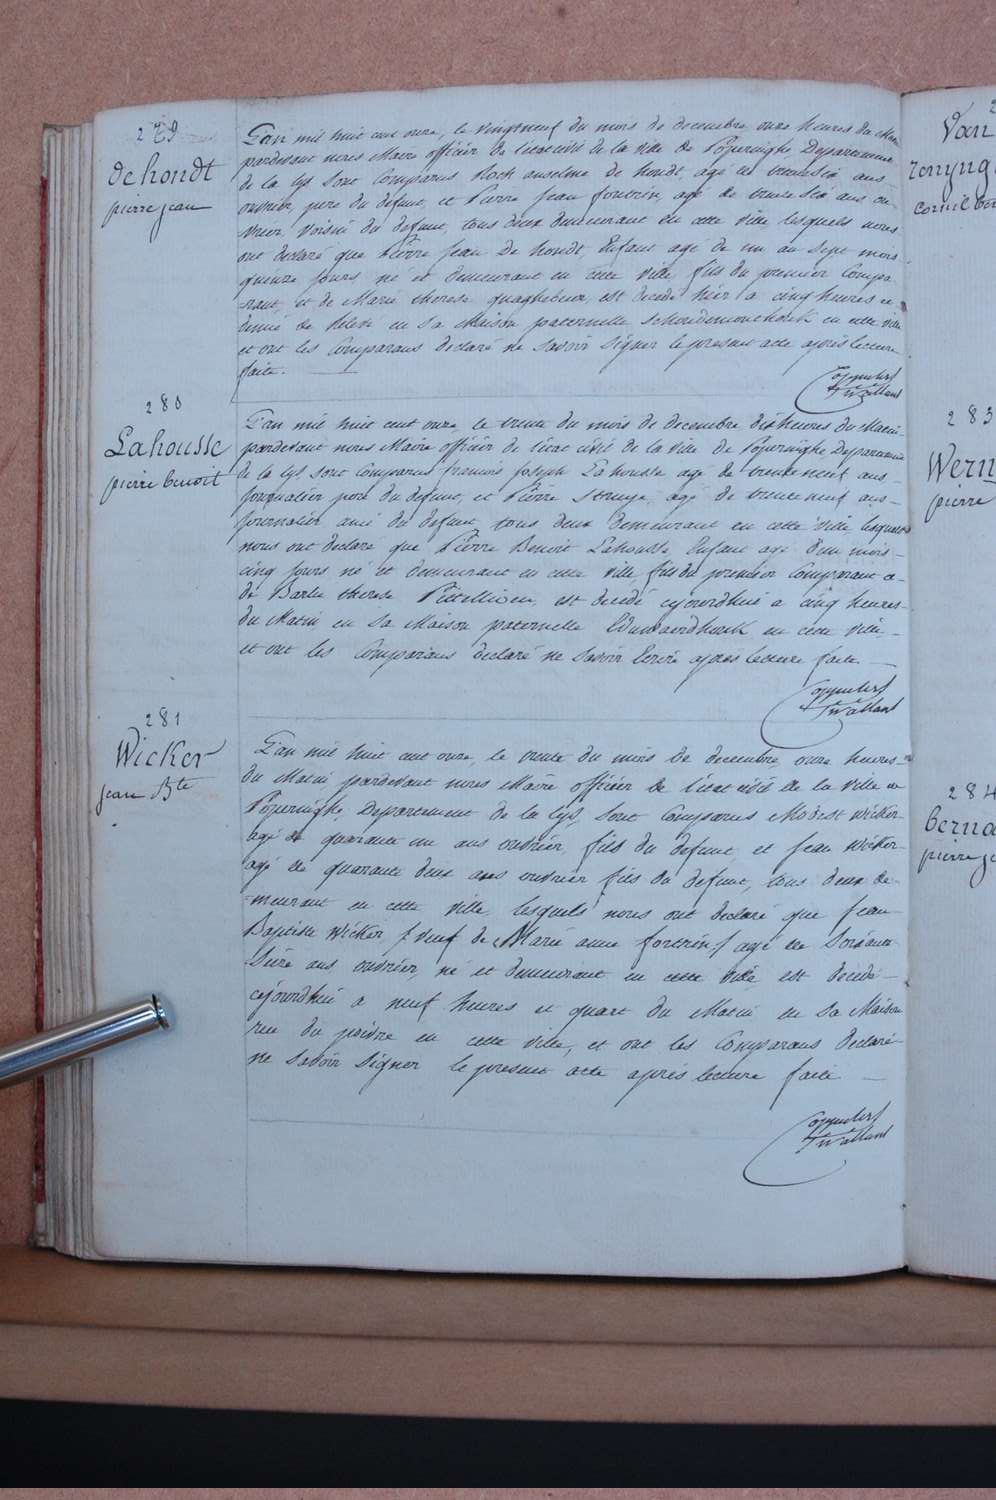 279
de hondt
pierre jean
L'an mil huit cent onze, le vingtneuf du mois de decembre, onze heures du Matin
pardevant nous Maire officier de l'etat civil de la ville de Poperinghe Departement
de la Lys sont Comparus Roch anselme de hondt, agé de trentesix ans
ouvrier, pere du defunt, et Pierre Jean fontrin, agé de trente six ans ou-
vrier, voisin du defunt, tous deux demeurant en cette ville lesquels nous
ont declaré que Pierre Jean De hondt, Enfant agé de un an sept mois
quinze jours, né et demeurant en cette ville fils du premier Compa
-rant, et de Marie therese quaghebeur, est decedé hier a cinq heures et
demie de relevé en sa Maison paternelle Schoudemonthoek en cette ville
et ont les Comparans declaré ne savoir signer le present acte après lecture
faite.
280
Lahousse
pierre benoit
L'an mil huit cent onze, le trente du mois de decembre dix heures du Matin
pardevant nous Maire officier de l'etat civil de la ville de Poperinghe Departement
de la Lys, sont Comparus francois Joseph Lahousse agé de trenteneuf ans
journalier pere du defunt, et Pierre Struye, agé de trenteneuf ans
journalier ami du defunt, tous deux demeurant en cette ville, lesquels
nous ont declaré que Pierre Benoit Lahousse Enfant agé d'un mois
cinq jours né et demeurant en cette ville fils du premier Comparant et
de Barbe therese, est decedé cejourdhui a cinq heures
du Matin en sa Maison paternelle en cette ville
et ont les Comparans declaré ne savoir Ecrire après lecture faite.
281
Wicker
jean Bte
L'an mil huit cent onze, le trente du mois de decembre, onze heures
du Matin pardevant nous Maire officier de l'etat civil de la ville de
Poperinghe, Departement de la Lys, sont Comparus Modest Wicker
agé de quarante un ans ouvrier, fils du defunt et Jean Wicker
agé de quarante deux ans ouvrier fils du defunt, tous deux de-
meurant en cette ville, lesquels nous ont declaré que Jean
Baptiste Wicker, veuf de Marie anne fontrin, agé de Soixante
Seize ans ouvrier né et demeurant en cette ville est decedé
cejourdhui a neuf heures et quart du Matin en sa Maison
rue du poivre en cette ville, et ont les Comparans declaré
ne savoir signer le present acte après lecture faite
Van
renyng
cornil
283
Wern
pierre
284
berna
pierre j